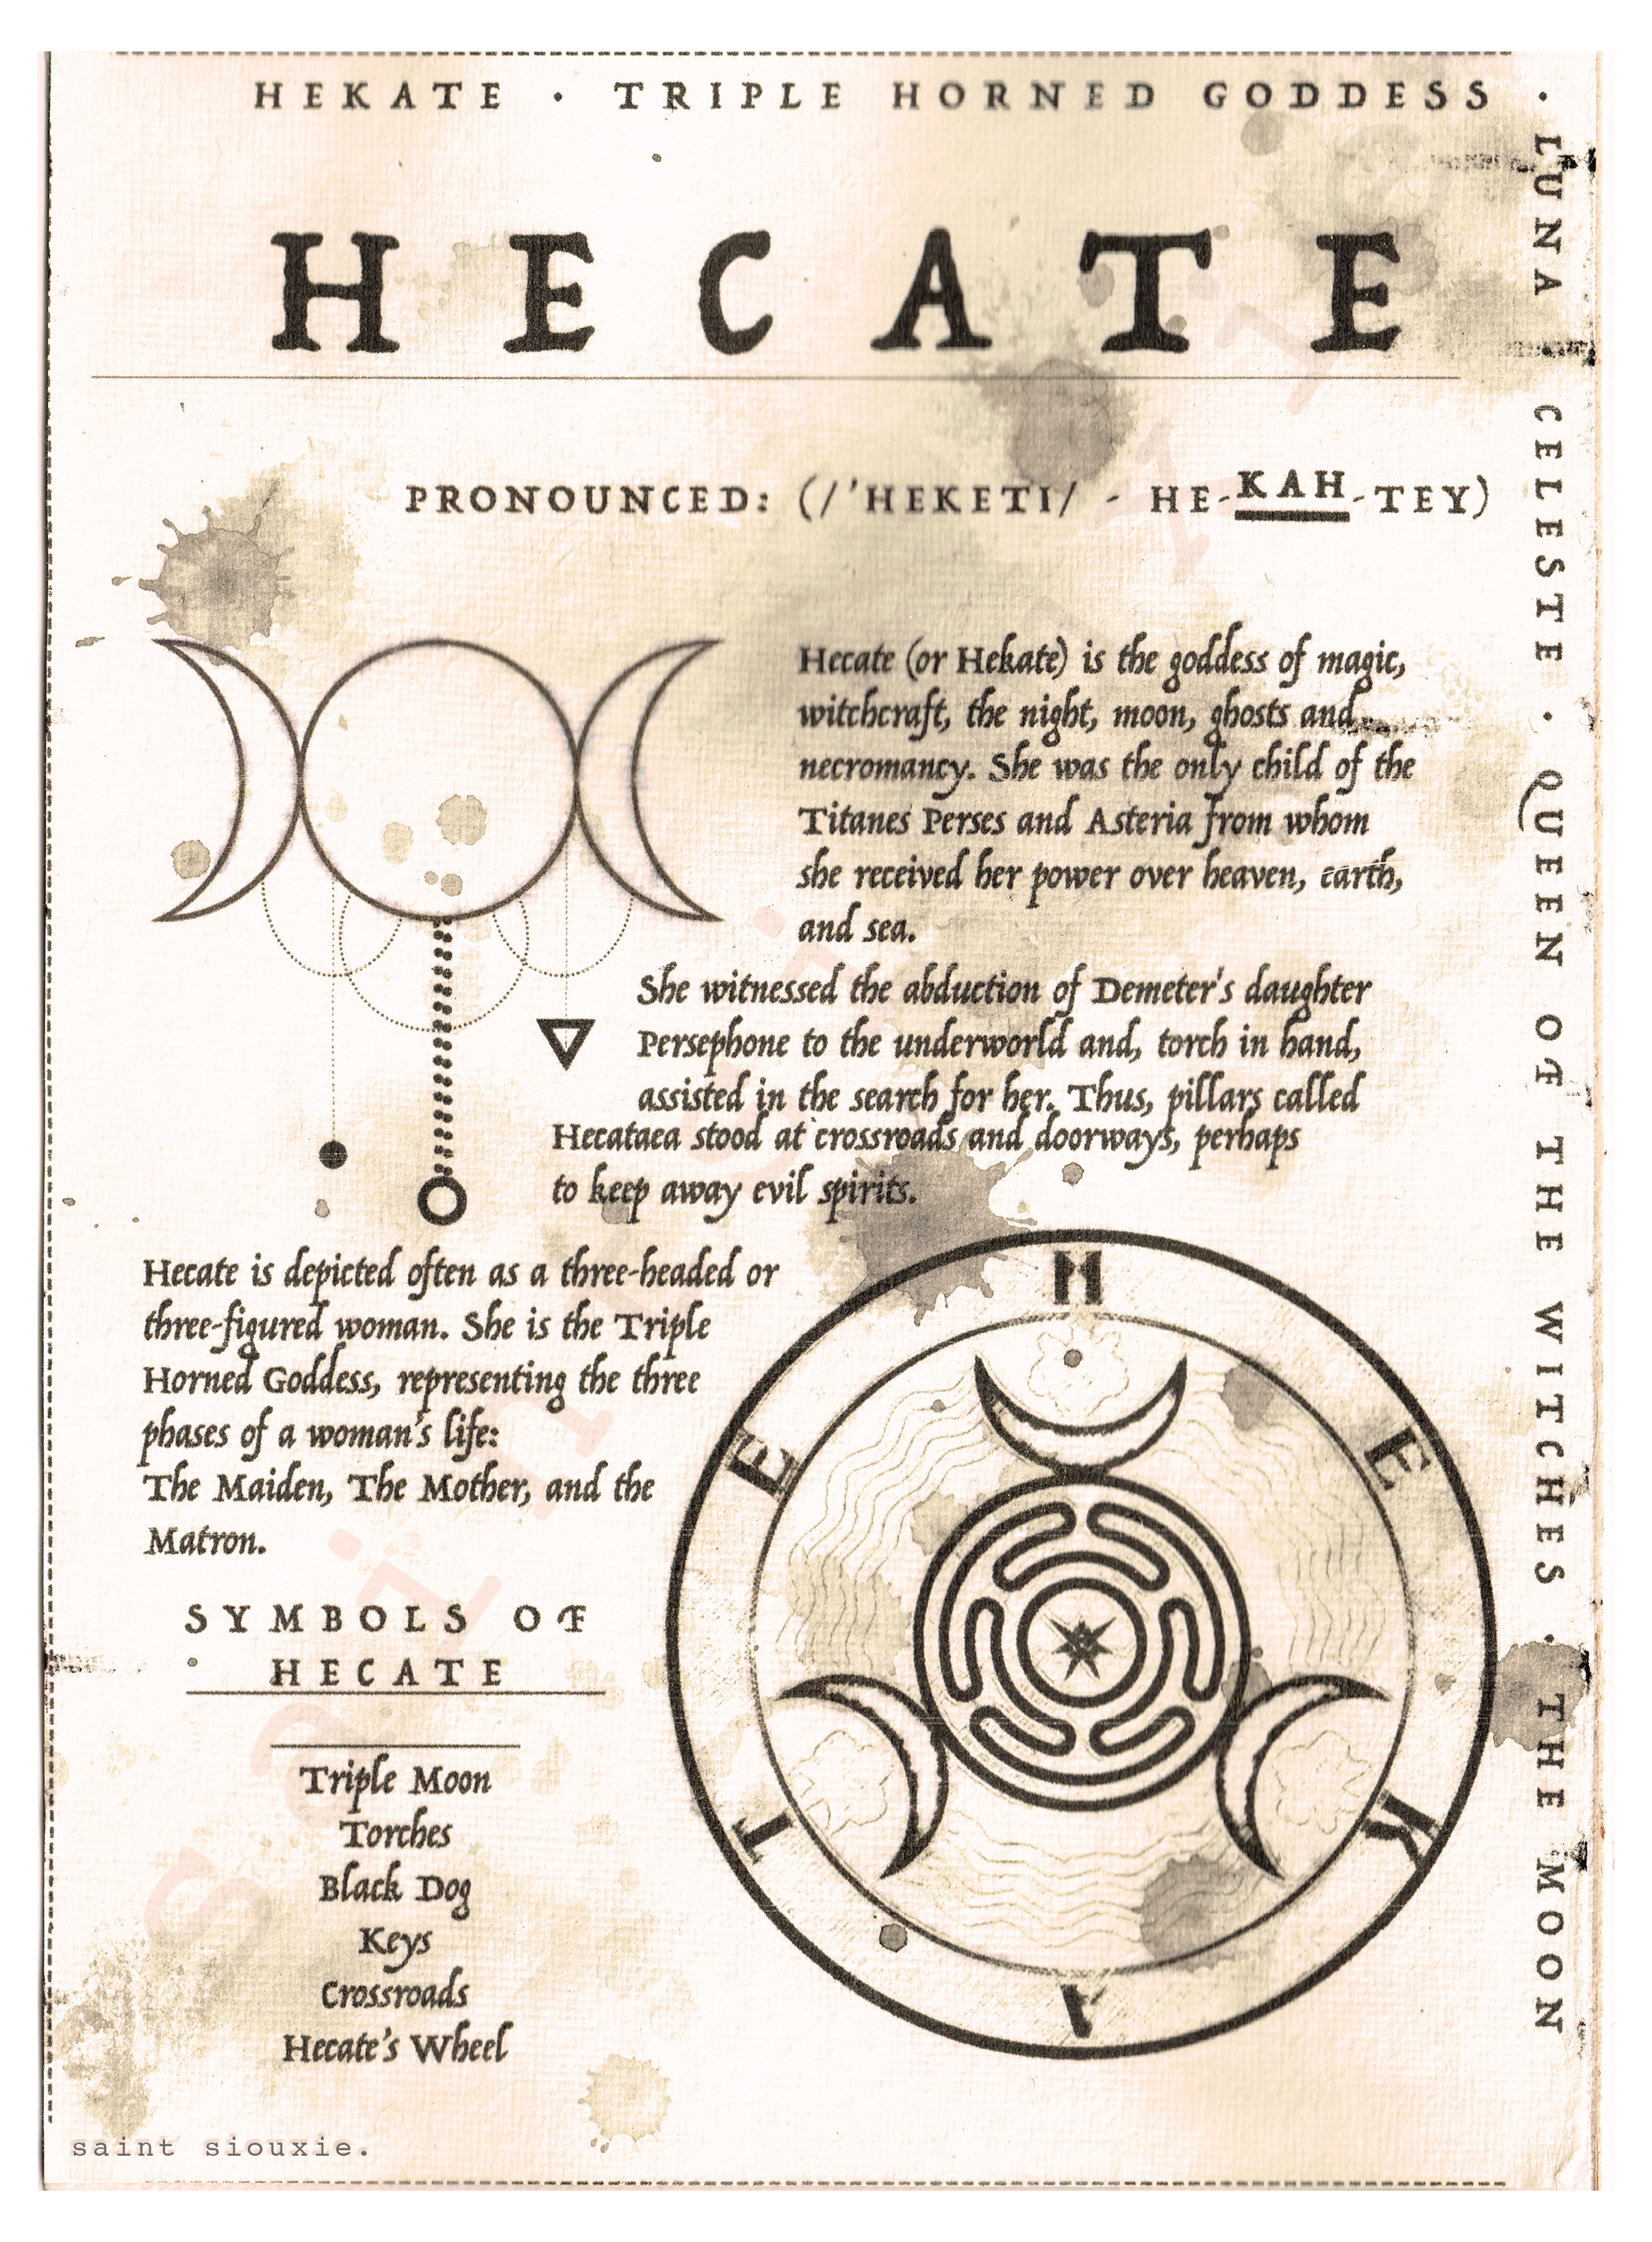 HEKATE · TRIPLE HORNED GODDESS · LUNA CELESTE · QUEEN OF THE WITCHES · THE MOON
HECATE
PRONOUNCED: (/'HEKETI/ - HE-KAH-TEY)
Hecate (or Hekate) is the goddess of magic,
witchcraft, the night, moon, ghosts and
necromancy. She was the only child of the
Titanes Perses and Asteria from whom
she received her power over heaven, earth,
and sea.
She witnessed the abduction of Demeter's daughter
Persephone to the underworld and, torch in hand,
assisted in the search for her. Thus, pillars called
Hecataea stood at crossroads and doorways, perhaps
to keep away evil spirits.
Hecate is depicted often as a three-headed or
three-figured woman. She is the Triple
Horned Goddess, representing the three
phases of a woman's life:
The Maiden, The Mother, and the
Matron.
HEKATE
SYMBOLS OF
HECATE
Triple Moon
Torches
Black Dog
Keys
Crossroads
Hecate's Wheel
saint siouxie.